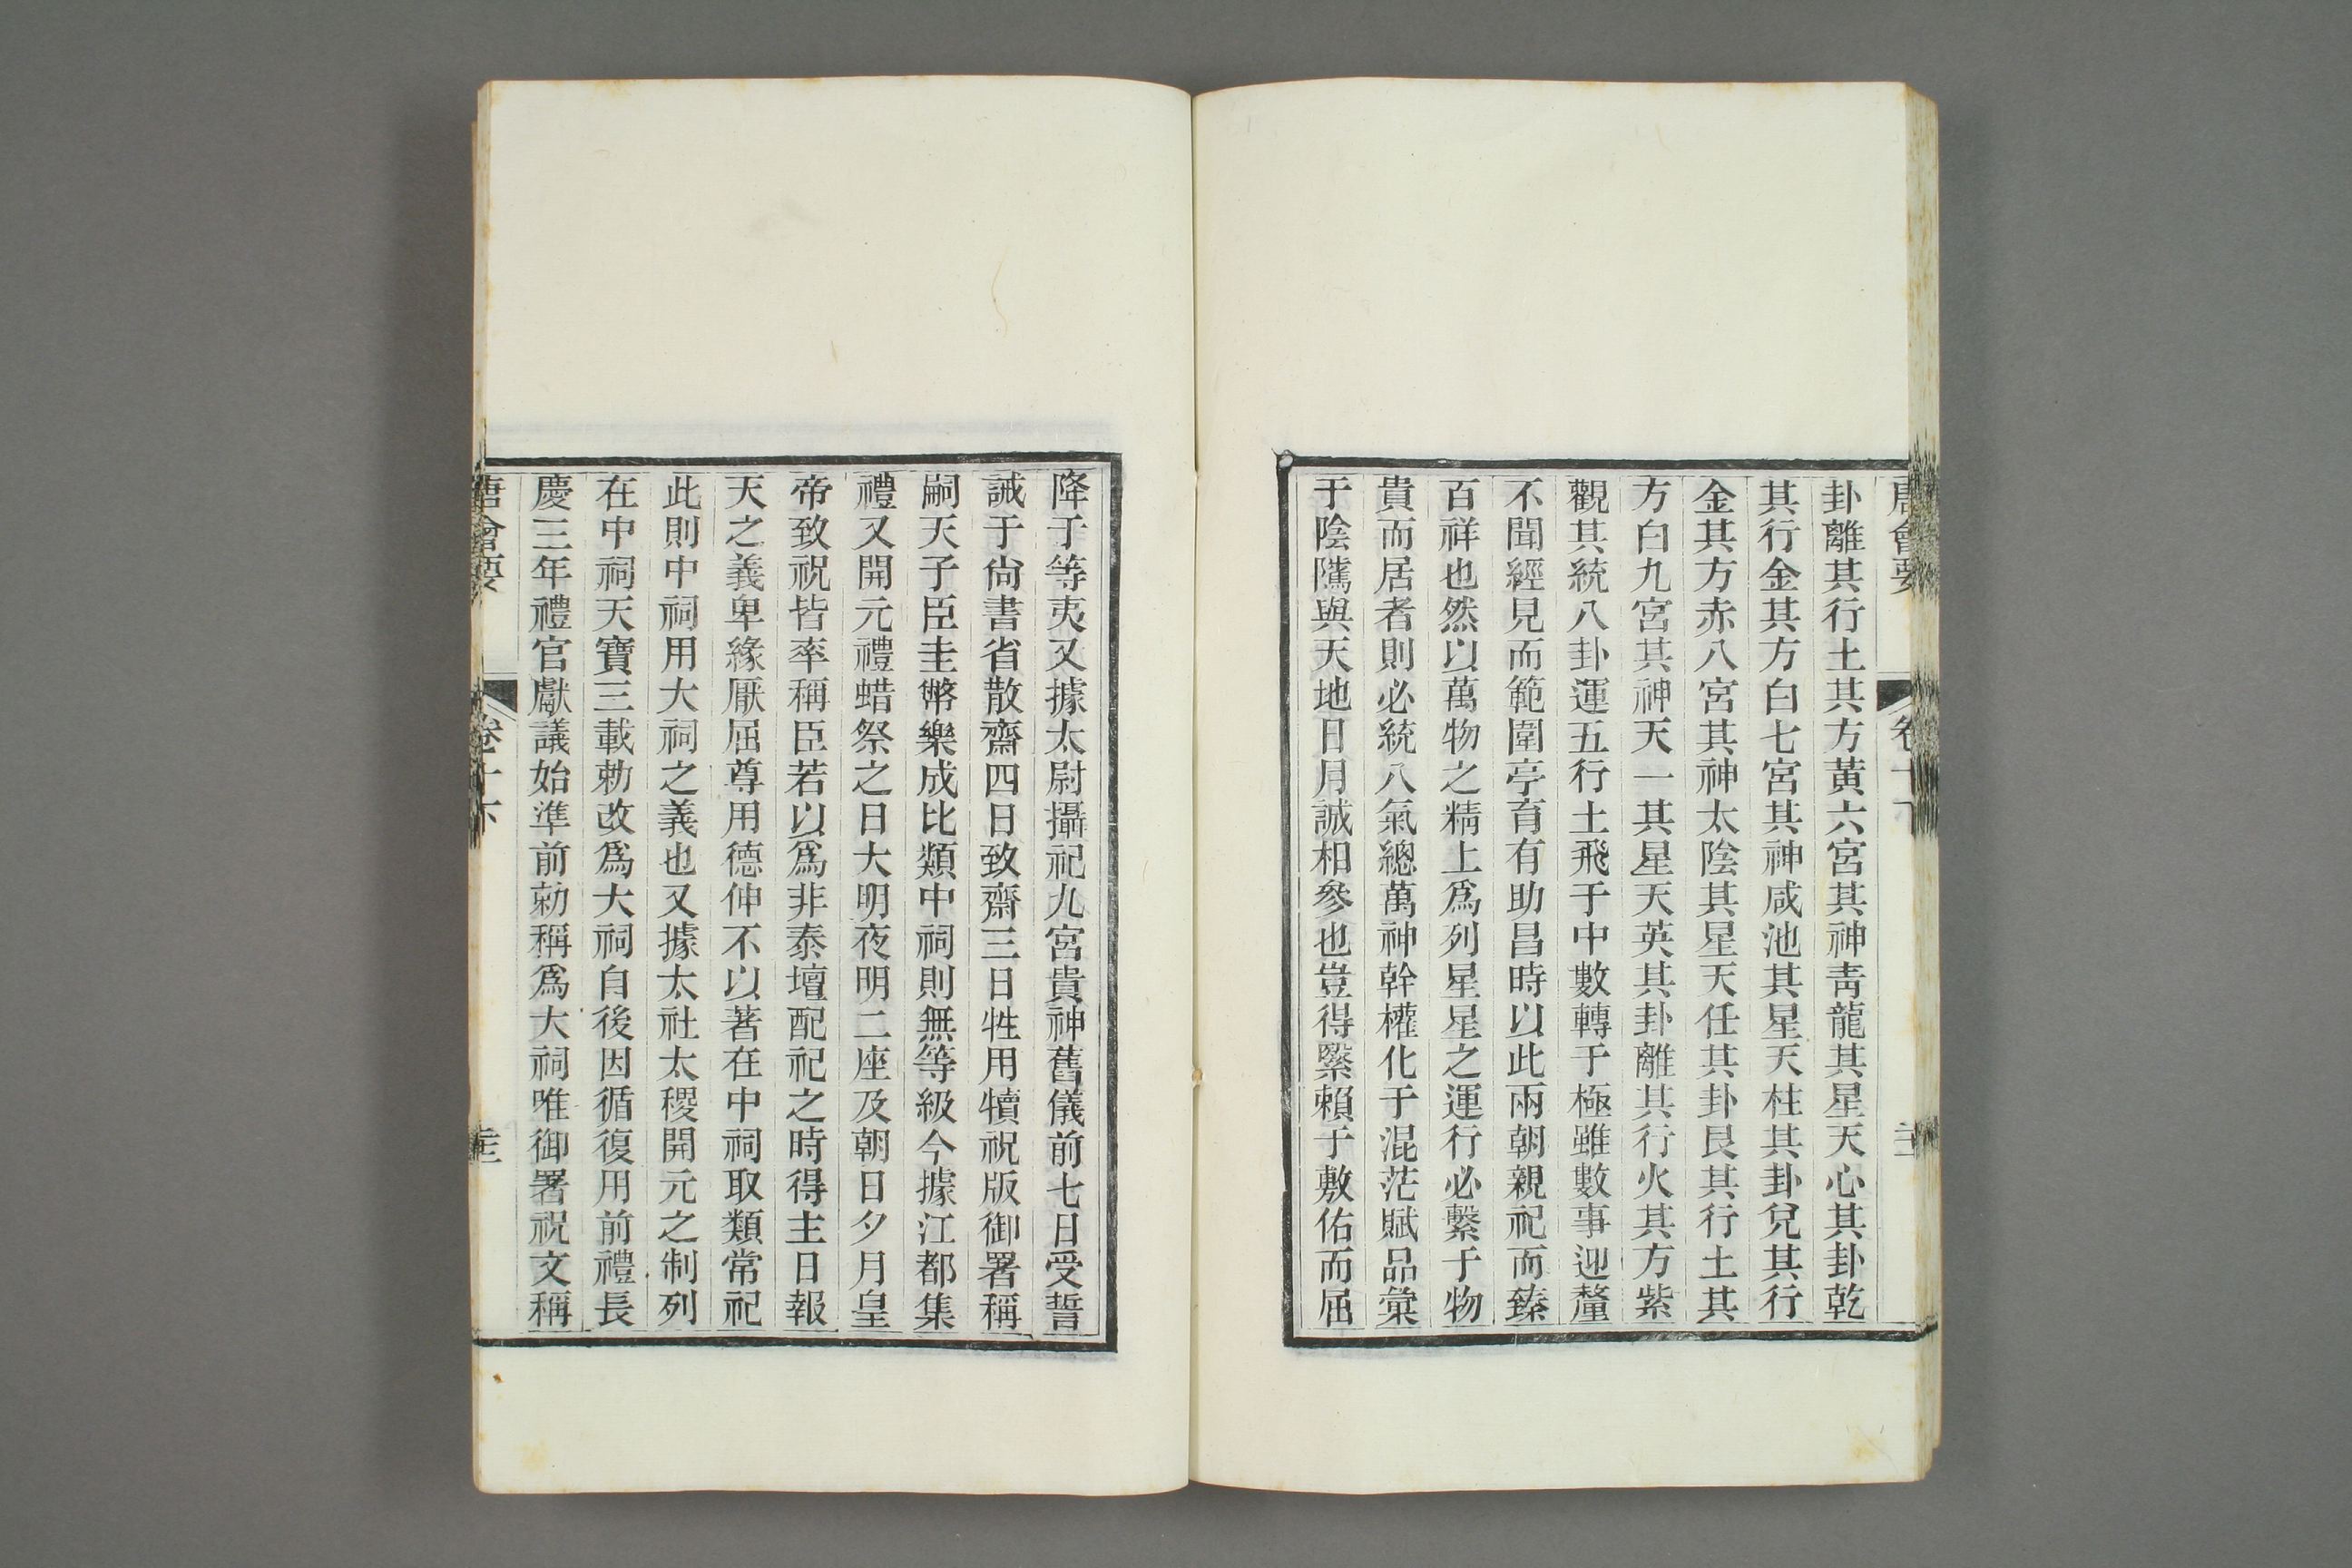 卦離其行土其方黃六宮其神靑龍其星天心其卦乾
其行金其方白七宮其神咸池其星天柱其卦兌其行
金其方赤八宮其神太陰其星天任其卦艮其行土其
方白九宮其神天一其星天英其卦離其行火其方紫
觀其統八卦運五行土飛于中數轉于極雖數事迎釐
不聞經見而範圍亭育有助昌時以此兩朝親祀而臻
百祥也然以萬物之精上爲列星星之運行必繫于物
貴而居者則必統八氣總萬神幹權化于混茫賦品彙
于陰隲與天地日月誠相參也豈得繄賴于敷佑而屈
降于等夷又據太尉攝祀九宮貴神舊儀前七日受誓
誡于尙書省散齋四日致齋三日牲用犢祝版御署稱
嗣天子臣圭幣樂成比類中祠則無等級今據江都集
禮又開元禮蜡祭之日大明夜明二座及朝日夕月皇
帝致祝皆率稱臣若以爲非泰壇配祀之時得主日報
天之義卑緣厭屈尊用德伸不以著在中祠取類常祀
此則中祠用大祠之義也又據太社太稷開元之制列
在中祠天寶三載勅改爲大祠自後因循復用前禮長
慶三年禮官獻議始準前勅稱爲大祠唯御署祝文稱
唐會要
卷十下